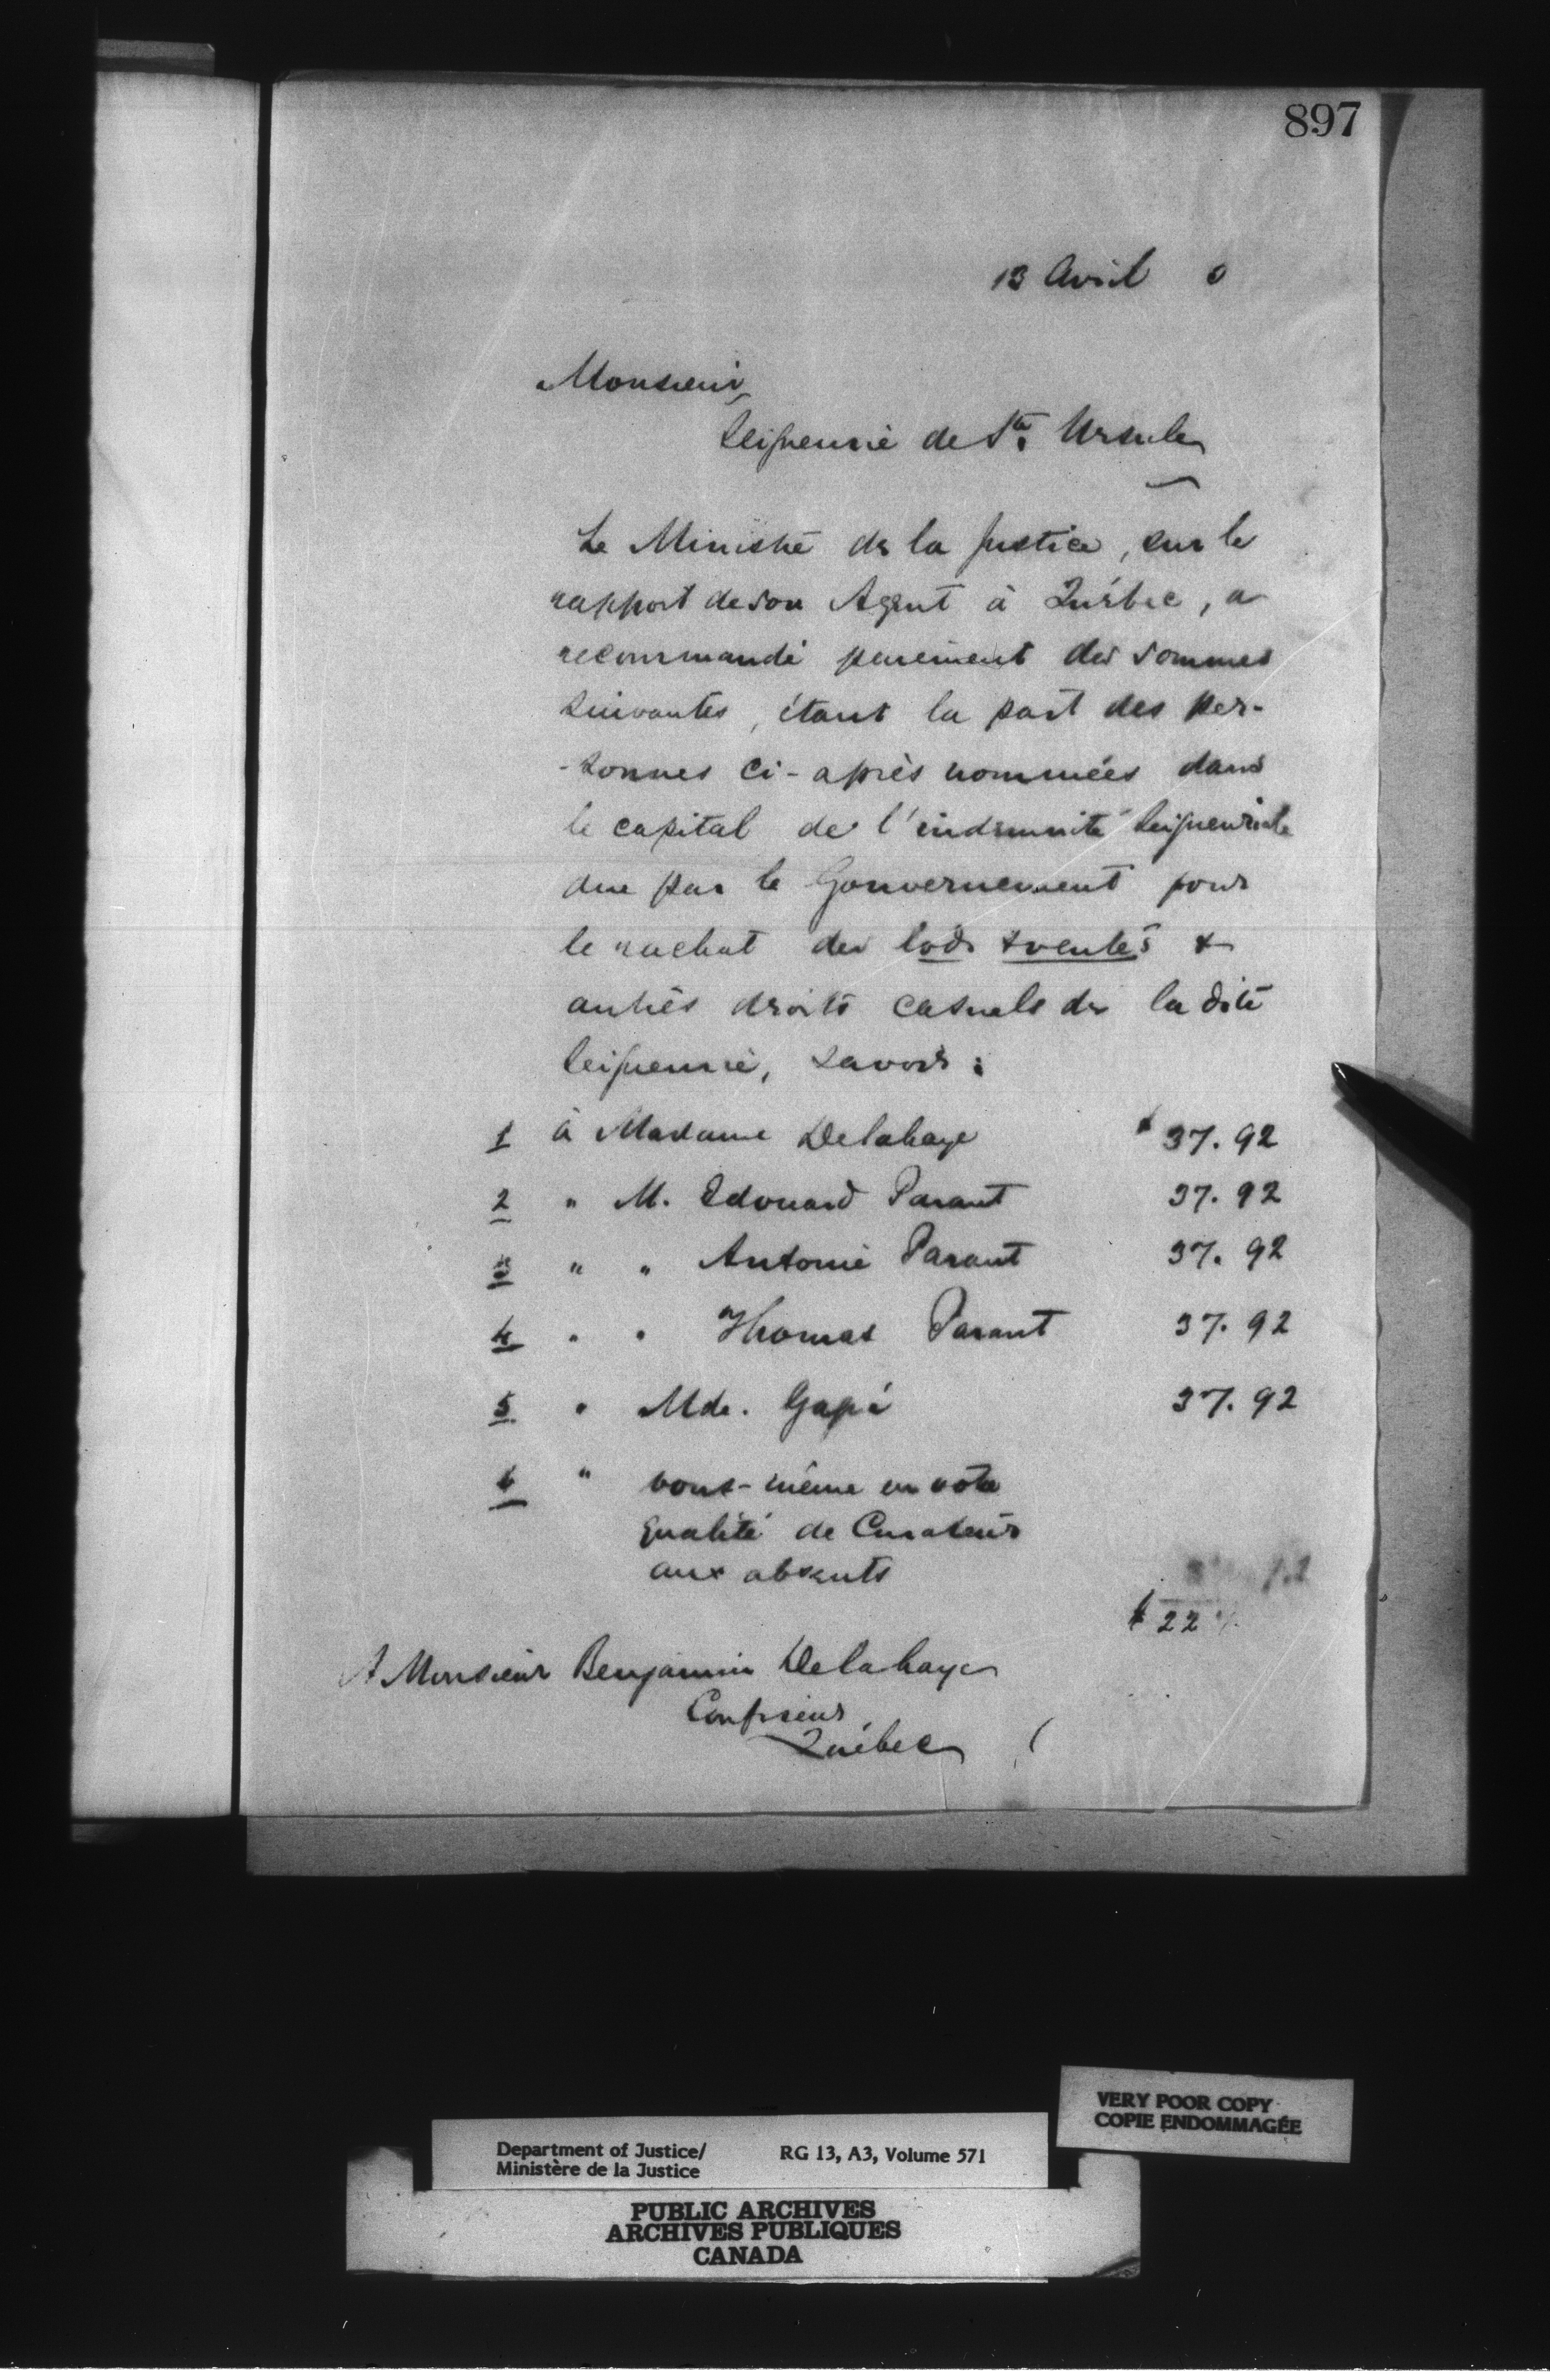 897
13 Avril 0
Monsieur,
Seigneurie de Ste. Ursule
Le Ministre de la Justice, sur le
rapport de son Agent à Québec, a
recommandé paiement des sommes
suivantes, étant la part des per-
-sonnes ci-après nommées dans
le capital de l'indemnité Seigneuriale
due par le Gouvernement pour
le rachat des lods & ventes &
autres droits casuels de la dite
Seigneurie, savoir:
1 à Madame Delahaye $37.92
2 " M. Edouard Parant 37.92
3 " " Antoine Parant 37.92
4 " " Thomas Parant 37.92
5 " Mde. Gapé 37.92
6 " vous-même en votre
qualité de Curateur
aux absents
$22
A Monsieur Benjamin Delahaye
Confiseur,
Québec
VERY POOR COPY
COPIE ENDOMMAGÉE
Department of Justice/ RG 13, A3, Volume 571
Ministère de la Justice
PUBLIC ARCHIVES
ARCHIVES PUBLIQUES
CANADA